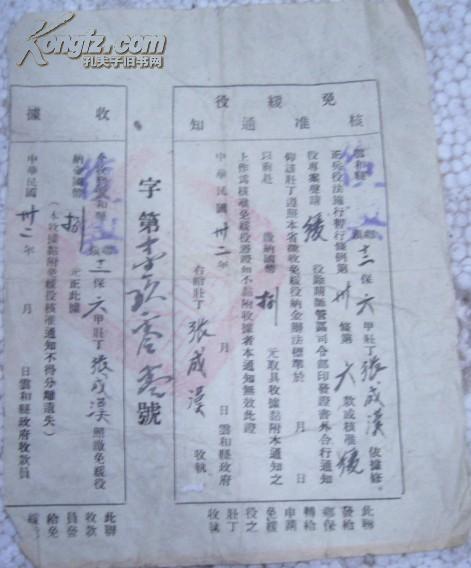 Kongfz.com
孔夫子旧书网
役緩免
知通准核
鎮十三保六甲壯丁張成漢依據修
正兵役法施行暫行條例第卅條第六款或核准緩
役專案聲請緩役除請師管區司令部印發證書外合行通知
仰該壯丁遵照本省徵收免緩役納金辦法標準於 月 日
以前赴 繳納國幣捌元取具收據黏附本通知之
上作為核准免緩役證證如不黏附收據者本通知無效此證
中華民國卅二年 月 日雲和縣政府
右給壯丁張成漢收執
此聯
發給
鄉保
轉給
申請
免緩
役之
壯丁
收執
字第 號
據收
鎮十三保六甲壯丁張成漢照繳免緩役
納金國幣捌元正此據
(本收據黏附免緩役核准通知不得分離遺失)
中華民國卅二年 月 日雲和縣政府收款員
此聯
收款
員發
給免
緩